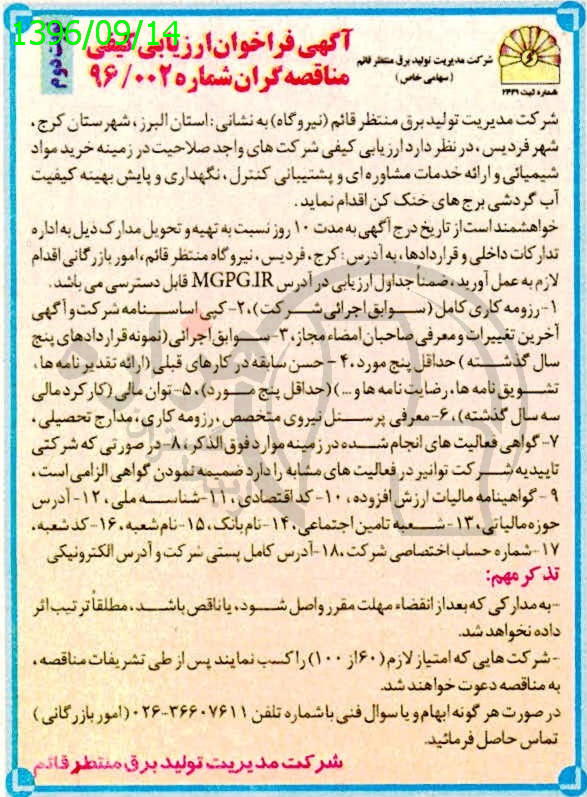 1396/09/14
نوبت دوم
آگهی فراخوان ارزیابی کیفی
مناقصه گران شماره ۹۶/۰۰۲
شرکت مدیریت تولید برق منتظر قائم
(سهامی خاص)
شماره ثبت ۲۴۳۹
شرکت مدیریت تولید برق منتظر قائم (نیروگاه) به نشانی: استان البرز، شهرستان کرج،
شهر فردیس، در نظر دارد ارزیابی کیفی شرکت های واجد صلاحیت در زمینه خرید مواد
شیمیائی و ارائه خدمات مشاوره ای و پشتیبانی کنترل، نگهداری و پایش بهینه کیفیت
آب گردشی برج های خنک کن اقدام نماید.
خواهشمند است از تاریخ درج آگهی به مدت ۱۰ روز نسبت به تهیه و تحویل مدارک ذیل به اداره
تدارکات داخلی و قراردادها، به آدرس: کرج، فردیس، نیروگاه منتظر قائم، امور بازرگانی اقدام
لازم به عمل آورید، ضمناً جداول ارزیابی در آدرس MGPG.IR قابل دسترسی می باشد.
۱- رزومه کاری کامل (سوابق اجرائی شرکت)، ۲- کپی اساسنامه شرکت و آگهی
آخرین تغییرات و معرفی صاحبان امضاء مجاز، ۳- سوابق اجرائی (نمونه قراردادهای پنج
سال گذشته) حداقل پنج مورد، ۴- حسن سابقه در کارهای قبلی (ارائه تقدیرنامه ها،
تشویق نامه ها، رضایت نامه ها و ...) (حداقل پنج مورد)، ۵- توان مالی (کارکرد مالی
سه سال گذشته)، ۶- معرفی پرسنل نیروی متخصص، رزومه کاری، مدارج تحصیلی،
۷- گواهی فعالیت های انجام شده در زمینه موارد فوق الذکر، ۸- در صورتی که شرکتی
تاییدیه شرکت توانیر در فعالیت های مشابه را دارد ضمیمه نمودن گواهی الزامی است،
۹- گواهینامه مالیات ارزش افزوده، ۱۰- کد اقتصادی، ۱۱- شناسه ملی، ۱۲- آدرس
حوزه مالیاتی، ۱۳- شعبه تامین اجتماعی، ۱۴- نام بانک، ۱۵- نام شعبه، ۱۶- کد شعبه،
۱۷- شماره حساب اختصاصی شرکت، ۱۸- آدرس کامل پستی شرکت و آدرس الکترونیکی
تذکر مهم:
- به مدارکی که بعد از انقضاء مهلت مقرر واصل شود، یا ناقص باشد، مطلقاً ترتیب اثر
داده نخواهد شد.
- شرکت هایی که امتیاز لازم (۶۰ از ۱۰۰) را کسب نمایند پس از طی تشریفات مناقصه،
به مناقصه دعوت خواهند شد.
در صورت هر گونه ابهام و یا سوال فنی با شماره تلفن ۳۶۶۰۷۶۱۱-۰۲۶ (امور بازرگانی)
تماس حاصل فرمائید.
شرکت مدیریت تولید برق منتظر قائم